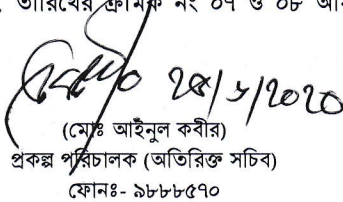 তারিখের ক্রমিক নং ০৭ ও ০৮
২৫/৬/২০২০
(মোঃ আইনুল কবীর)
প্রকল্প পরিচালক (অতিরিক্ত সচিব)
ফোনঃ- ৯৮৮৮৫৭০